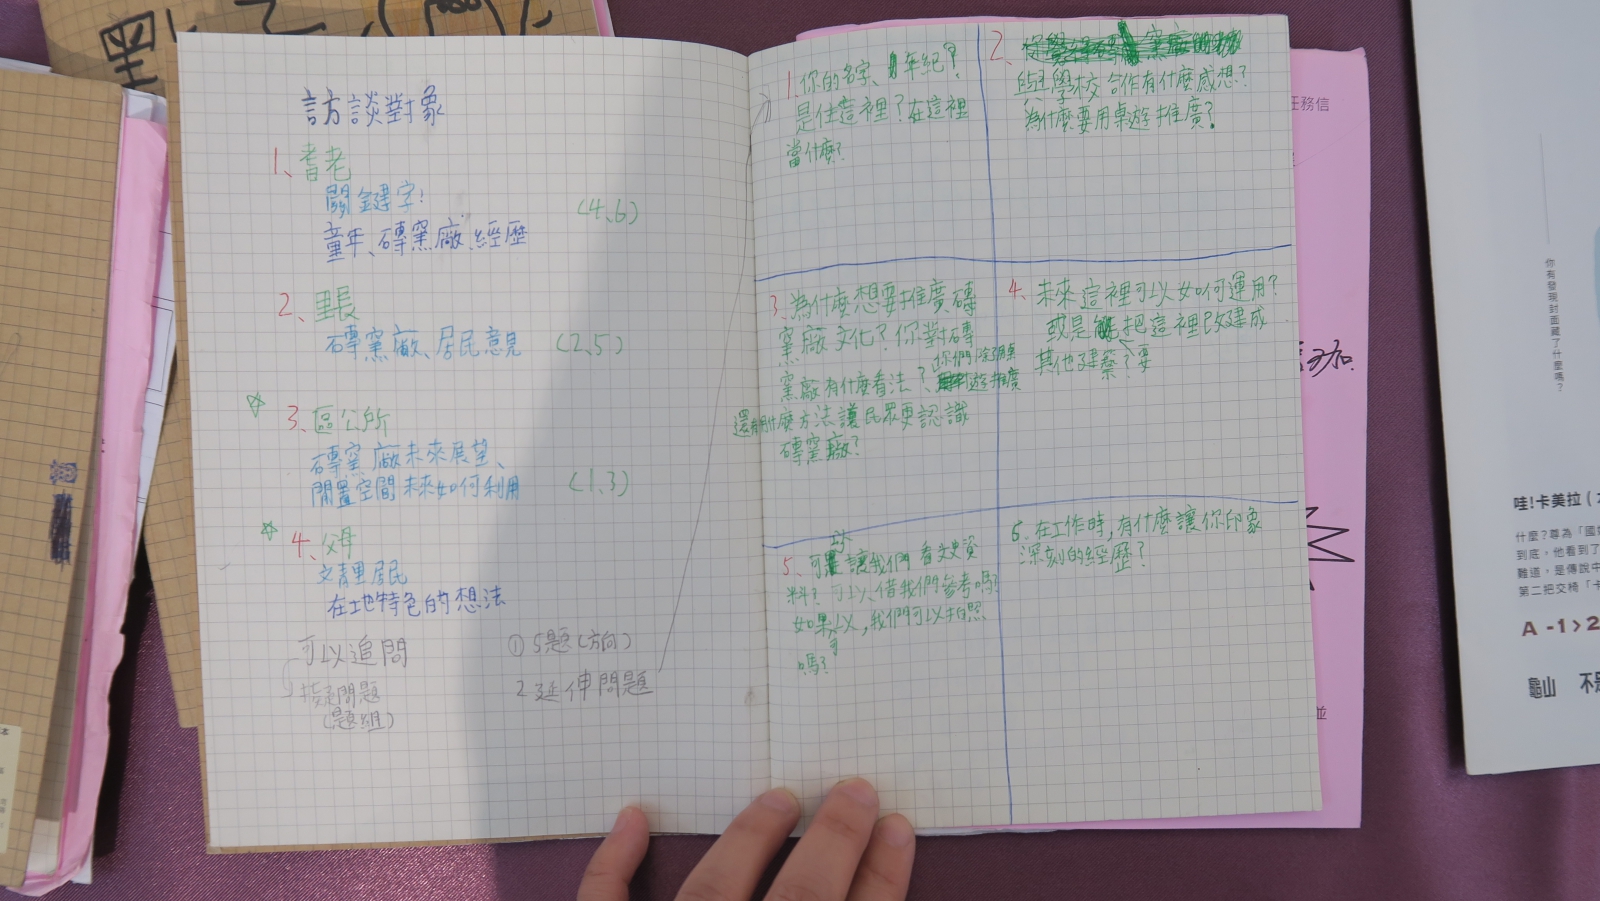 訪談對象
1、耆老
關鍵字:
童年、磚窯廠、經歷
(4、6)
2、里長
磚窯廠、居民意見
(2、5)
3、區公所
磚窯廠未來展望、
閒置空間未來如何利用
(1、3)
4、父母
文青里居民
在地特色的想法
可以追問
擬問題
(題組)
① 5題(方向)
2 延伸問題
1. 你的名字、年紀?
是住這裡?在這裡
當什麼?
2、
與學校合作有什麼感想?
為什麼要用桌遊推廣?
3、為什麼想要推廣磚
窯廠文化?你對磚
窯廠有什麼看法?你們除了用桌
遊推廣
還有用什麼方法讓民眾更認識
磚窯廠?
4、未來這裡可以如何運用?
或是要把這裡改建成
其他建築?
5、可以讓我們看文史資
料?可以借我們參考嗎?
如果可以,我們可以拍照
嗎?
6、在工作時,有什麼讓你印象
深刻的經歷?
任務信
你有發現封面藏了什麼嗎?
哇!卡美拉(
什麼?尊為「國
到底,他看到了
難道,是傳說中
第二把交椅「卡
A -1>2
龜山